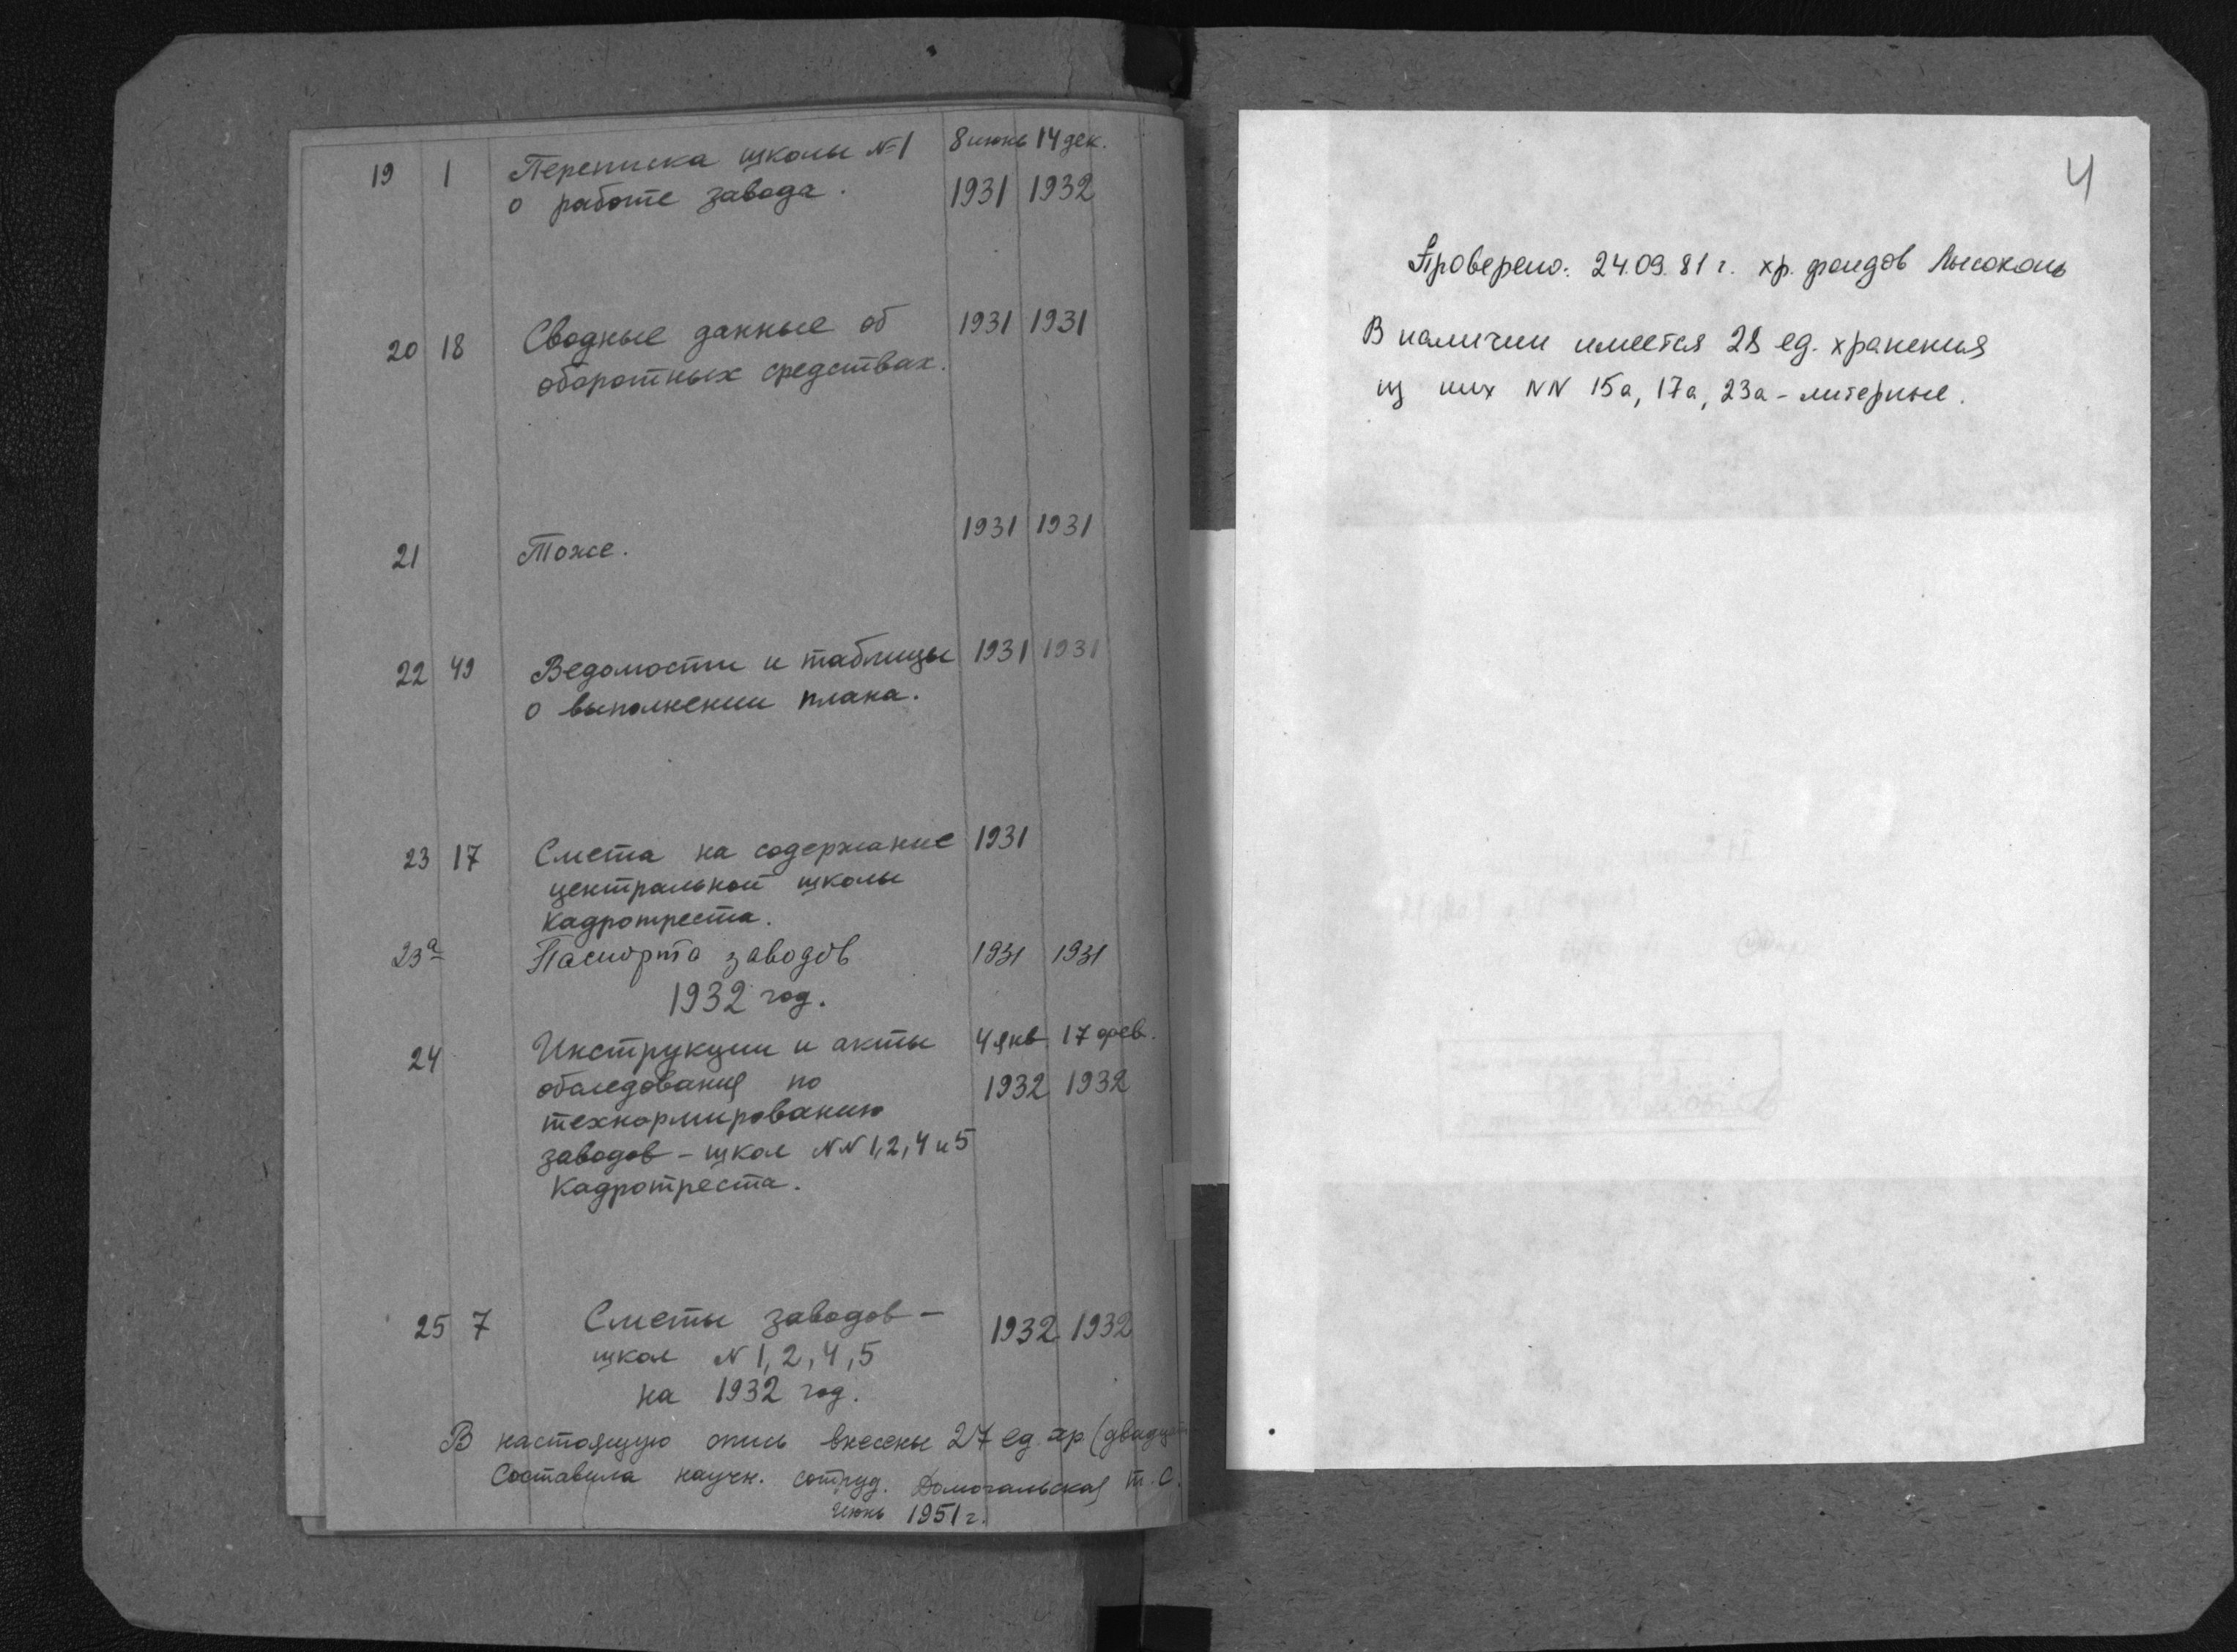 19 1 Переписка школы №1 8 июнь 14 дек.
о работе завода. 1931 1932
20 18 Сводные данные об 1931 1931
оборотных средствах.
21 Тоже. 1931 1931
22 49 Ведомости и таблицы 1931 1931
о выполнении плана.
23 17 Смета на содержание 1931
центральной школы
Кадротреста.
23а Паспорта заводов 1931 1931
1932 год.
24 Инструкции и акты 4 янв. 17 фев.
обследования по 1932 1932
технормированию
заводов - школ NN 1,2,4 и 5
Кадротреста.
25 7 Сметы заводов - 1932 1932
школ N 1,2,4,5
на 1932 год.
В настоящую опись внесены 27 ед. хр.
Составила научн. сотруд. Т. С.
Июнь 1951 г.
4
Проверено: 24.09.81 г. хр. фондов
В наличии имеется 28 ед. хранения
из них NN 15а, 17а, 23а - литерные.